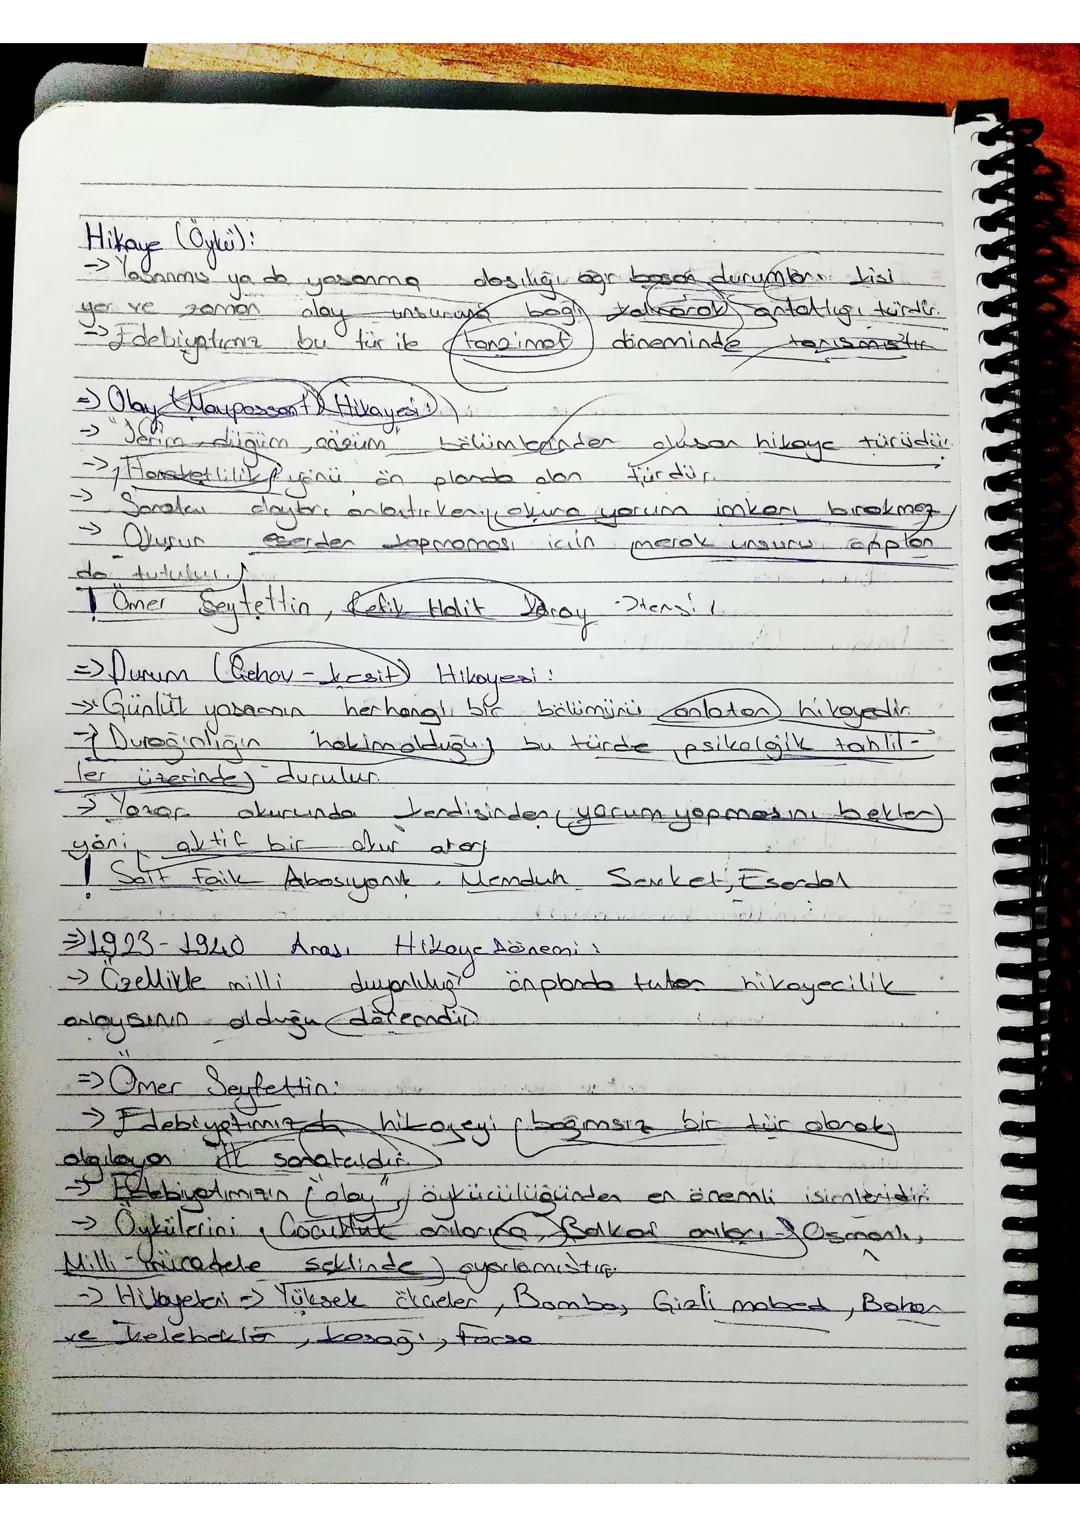 Hikaye (Öykü):
-> Yaşanmış ya da yaşanma olasılığı ağır basan durumların kişi
yer ve zaman olay unsuruna bağlı kalınarak anlatıldığı türdür.
-> Edebiyatımız bu tür ile tanzimat döneminde tanışmıştır
=> Olay (Maupassant) Hikayesi:
-> "Serim, düğüm, çözüm" bölümlerinden oluşan hikaye türüdür.
-> Hareketlilik yönü ön planda olan türdür.
-> Sanatçı olayları anlatırken okura yorum imkanı bırakmaz
-> Okurun eserden kopmaması için merak unsuru
da tutulur.
! Ömer Seyfettin, Refik Halit Karay
=> Durum (Çehov - kesit) Hikayesi:
-> Günlük yaşamın herhangi bir bölümünü anlatan hikayedir.
-> Durağanlığın hakim olduğu bu türde psikolojik tahlil-
ler üzerinde durulur.
-> Yazar okurunda kendisinden yorum yapmasını bekler
yani aktif bir okur arar
! Sait Faik Abasıyanık, Memduh Şevket, Esendal
=> 1923-1940 Arası Hikaye Dönemi:
-> Özellikle milli duyarlılığı önplanda tutan hikayecilik
anlayışının olduğu dönemdir
=> Ömer Seyfettin:
-> Edebiyatımızda hikayeyi bağımsız bir tür olarak
algılayan ilk sanatçıdır.
-> Edebiyatımızın "olay" öykücülüğünden en önemli isimleridir.
-> Öykülerini Çocukluk anılarına, Balkan anıları - Osmanlı,
Milli mücadele şeklinde ayarlamıştır.
-> Hikayeleri -> Yüksek ökçeler, Bomba, Gizli mabed, Bahar
ve kelebekler, kaşağı, Forsa